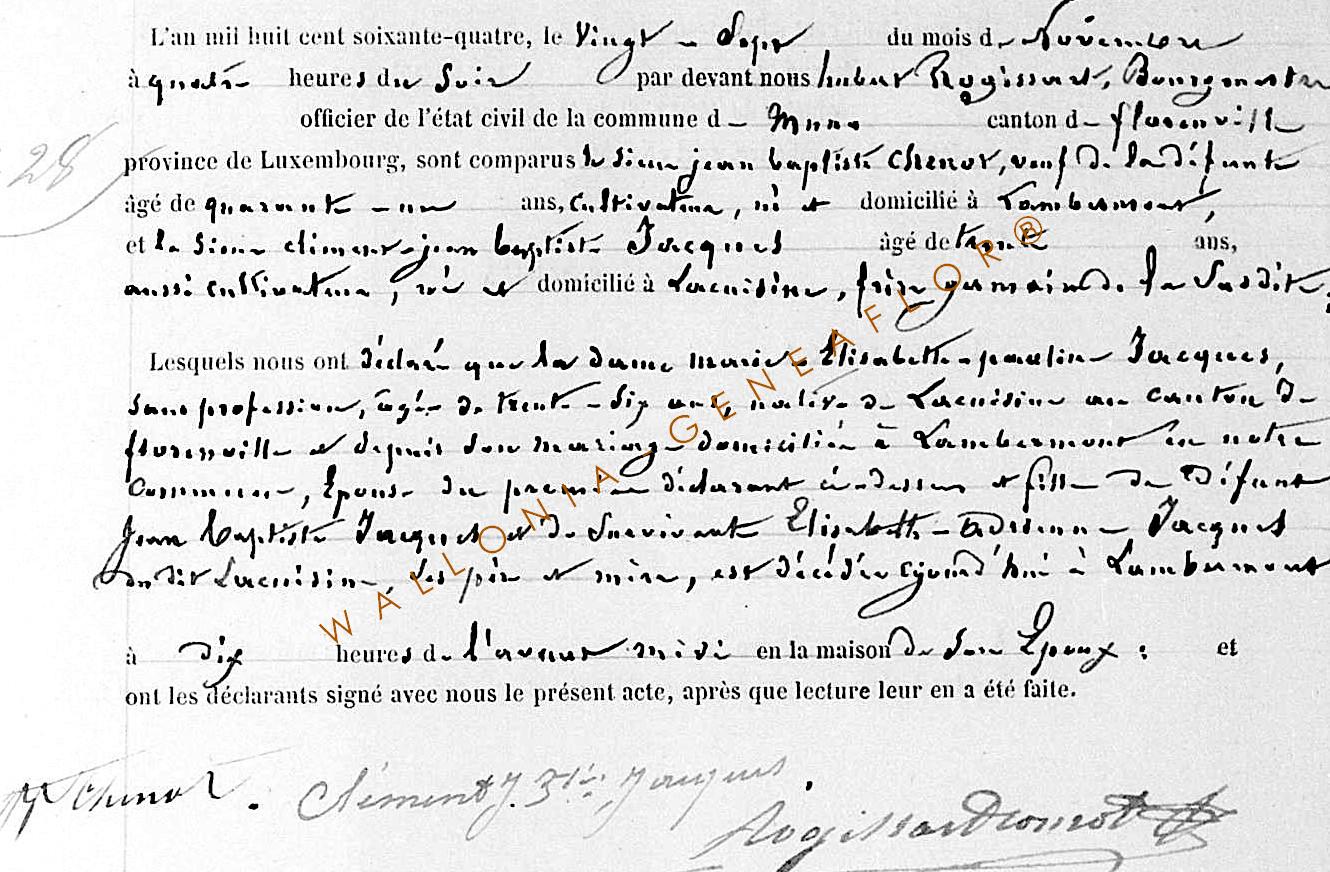 L'an mil huit cent soixante-quatre, le Vingt-Sept du mois de Novembre
à quatre heures du Soir par devant nous hubert Rogissart, Bourgmestre
officier de l'état civil de la commune de Muno canton de florenville
28
province de Luxembourg, sont comparus le Sieur jean baptiste Chenot, veuf de la défunte
âgé de quarante-un ans, Cultivateur, né et domicilié à Lambermont,
et le Sieur clément-jean baptiste Jacques âgé de trente ans,
aussi cultivateur, né et domicilié à Lacuisine, frère germain de la Susdite,
Lesquels nous ont déclaré que la dame marie-Elisabeth-pauline Jacques,
Sans profession, âgée de trente-Six ans, native de Lacuisine au canton de
florenville et depuis Son mariage domiciliée à Lambermont en notre
Commune, Epouse du premier déclarant ci-dessus et fille de Défunt
Jean Baptiste Jacques et de Survivante Elisabeth- Jacques
du dit Lacuisine, Ses père et mère, est décédée cejourd'hui à Lambermont
à Dix heures de l'avant midi en la maison de Son Epoux ; et
ont les déclarants signé avec nous le présent acte, après que lecture leur en a été faite.
Chenot. Clément J. Bte Jacques.
Rogissart
WALLONIA-GENEAFLOR®